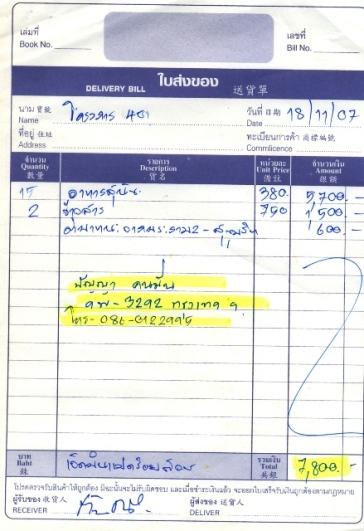 เล่มที่
Book No.
เลขที่
Bill No.
ใบส่งของ
DELIVERY BILL 送貨單
นาม 寶號
Name
วันที่ 日期 18/11/07
Date
ที่อยู่ 住址
Address
ทะเบียนการค้า 商標編號
Commlicence
จำนวน รายการ หน่วยละ จำนวนเงิน
Quantity Description Unit Price Amount
數量 貨名 備註 銀額
15 อาหารสุนัข 380. 5,700.-
2 ข้าวสาร 750 1,500.-
600.-
ปัญญา คนขับ
3292 กรุงเทพ ฯ
โทร-
บาท เจ็ดพันแปดร้อย รวมเงิน 7,800.-
Baht Total
銖 共銀
โปรดตรวจรับสินค้าให้ถูกต้อง มิฉะนั้นจะไม่รับผิดชอบ และเมื่อชำระเงินแล้ว จะออกใบเสร็จรับเงินถูกต้องตามกฎหมาย
ผู้รับของ 收貨人 ผู้ส่งของ 送貨人
RECEIVER DELIVER